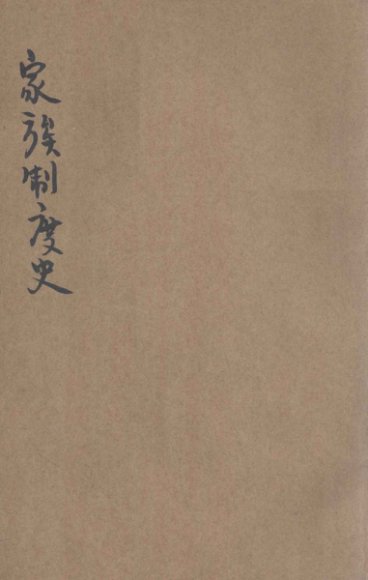 家族制度史